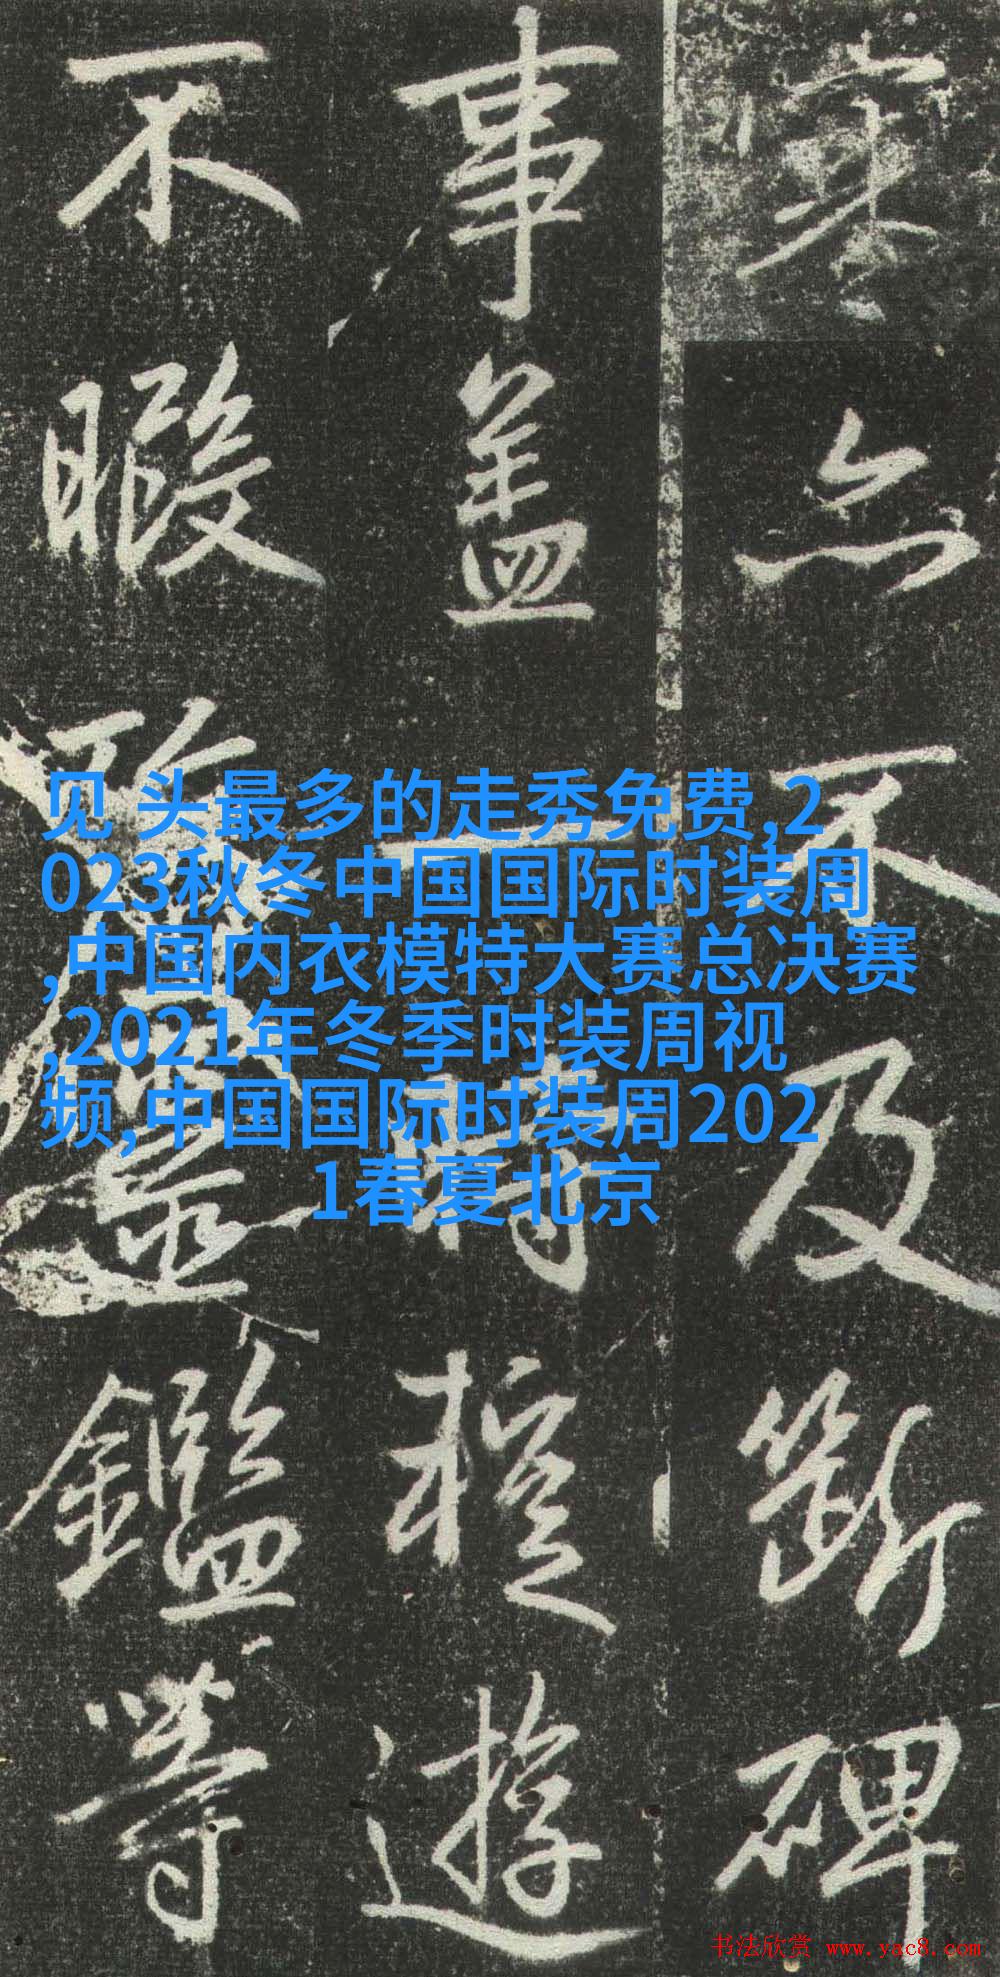 寒亦不及断碑
事盖一时椬游
不暇
鑑等
见 头最多的走秀免费,2
023秋冬中国国际时装周
,中国内衣模特大赛总决赛
,2021年冬季时装周视
频,中国国际时装周202
1春夏北京
书法欣赏 www.yac8.com